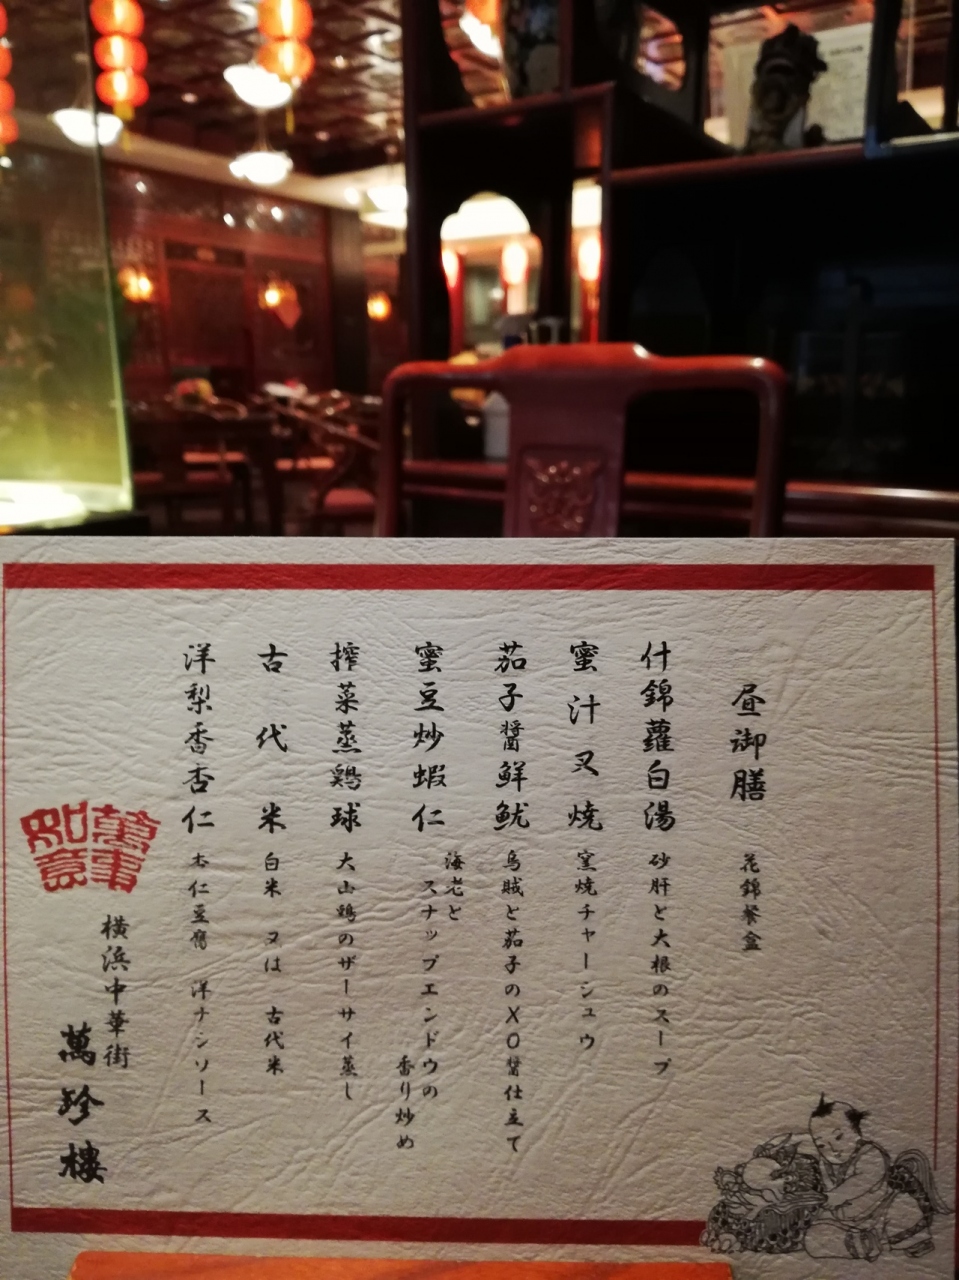 昼御膳 花錦餐盒
什錦蘿白湯 砂肝と大根のスープ
蜜汁叉焼 窯焼チャーシュウ
茄子醤鮮魷 烏賊と茄子のXO醤仕立て
蜜豆炒蝦仁 海老と
スナップエンドウの
香り炒め
搾菜蒸鶏球 大山鶏のザーサイ蒸し
古代米 白米 又は 古代米
洋梨香杏仁 杏仁豆腐 洋ナシソース
横浜中華街
萬珍樓
萬事
如意